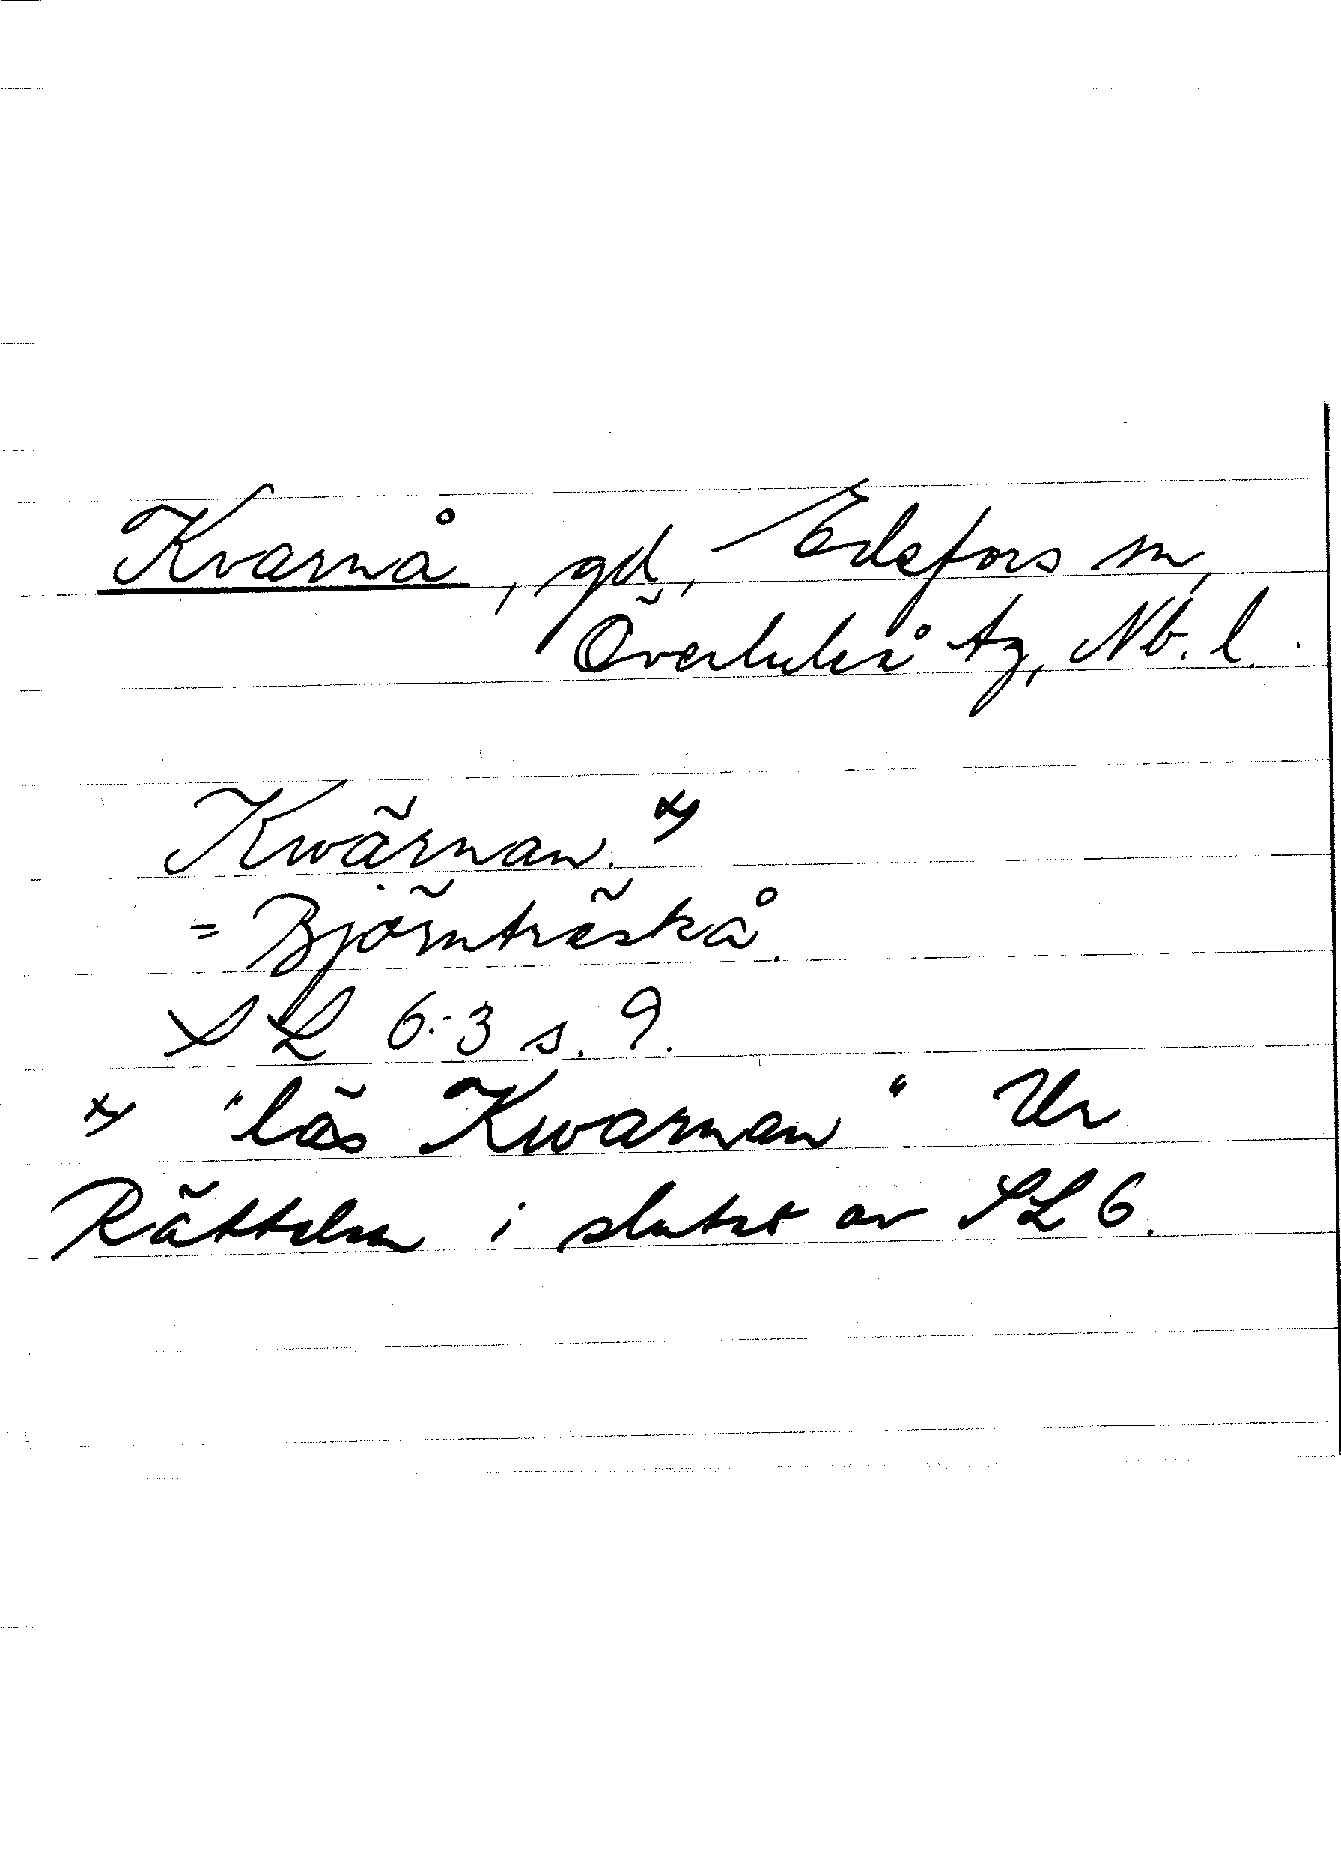 Kvarnå, gd, Edefors sn,
Överluleå tg, Nb. l.
Kwärnan. x)
= Björnträskå.
SL 6:3 s. 9.
x) "läs Kwarnan" Ur
Rättelser i slutet av SL 6.